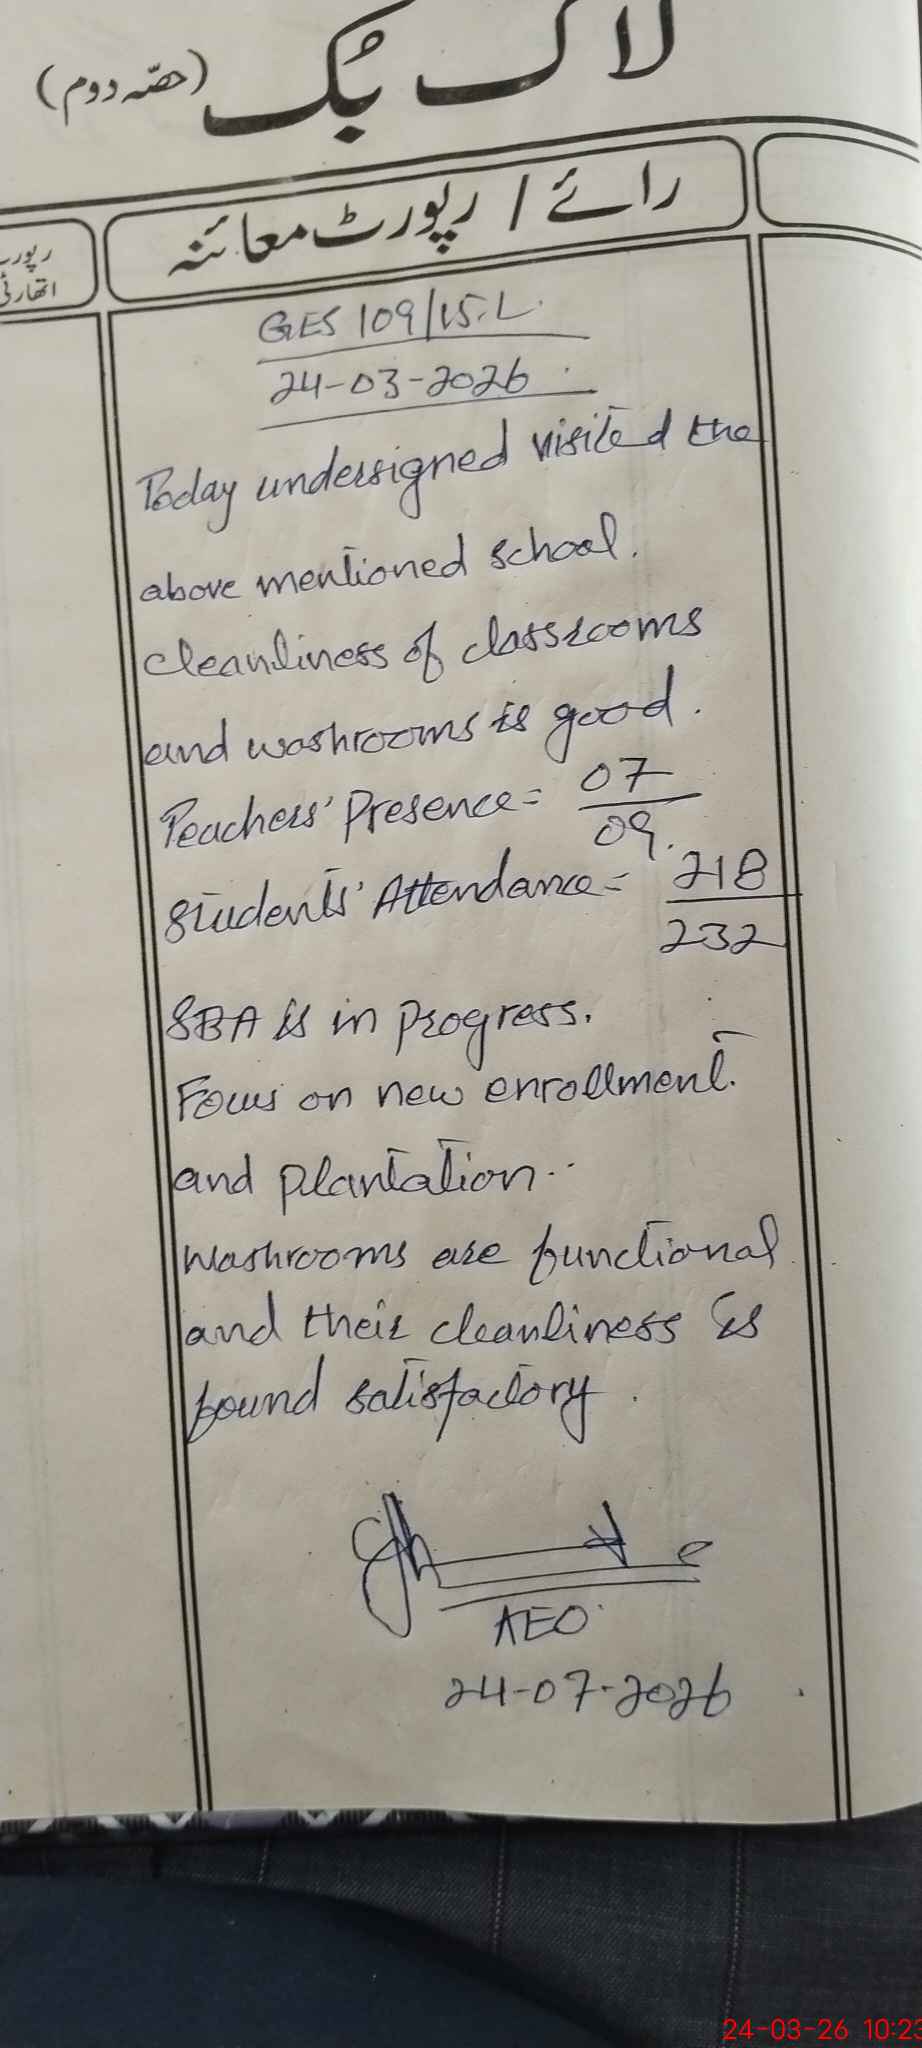 لاگ بُک (حصّہ دوم)
رائے / رپورٹ معائنہ
GES 109/15.L.
24-03-2026
Today undersigned visited the
above mentioned school.
cleanliness of classrooms
and washrooms is good.
Teachers' Presence = 07/09.
Students' Attendance = 218/232
SBA is in progress.
Focus on new enrollment.
and plantation..
Washrooms are functional
and their cleanliness is
found satisfactory.
AEO.
24-07-2026
24-03-26 10:23